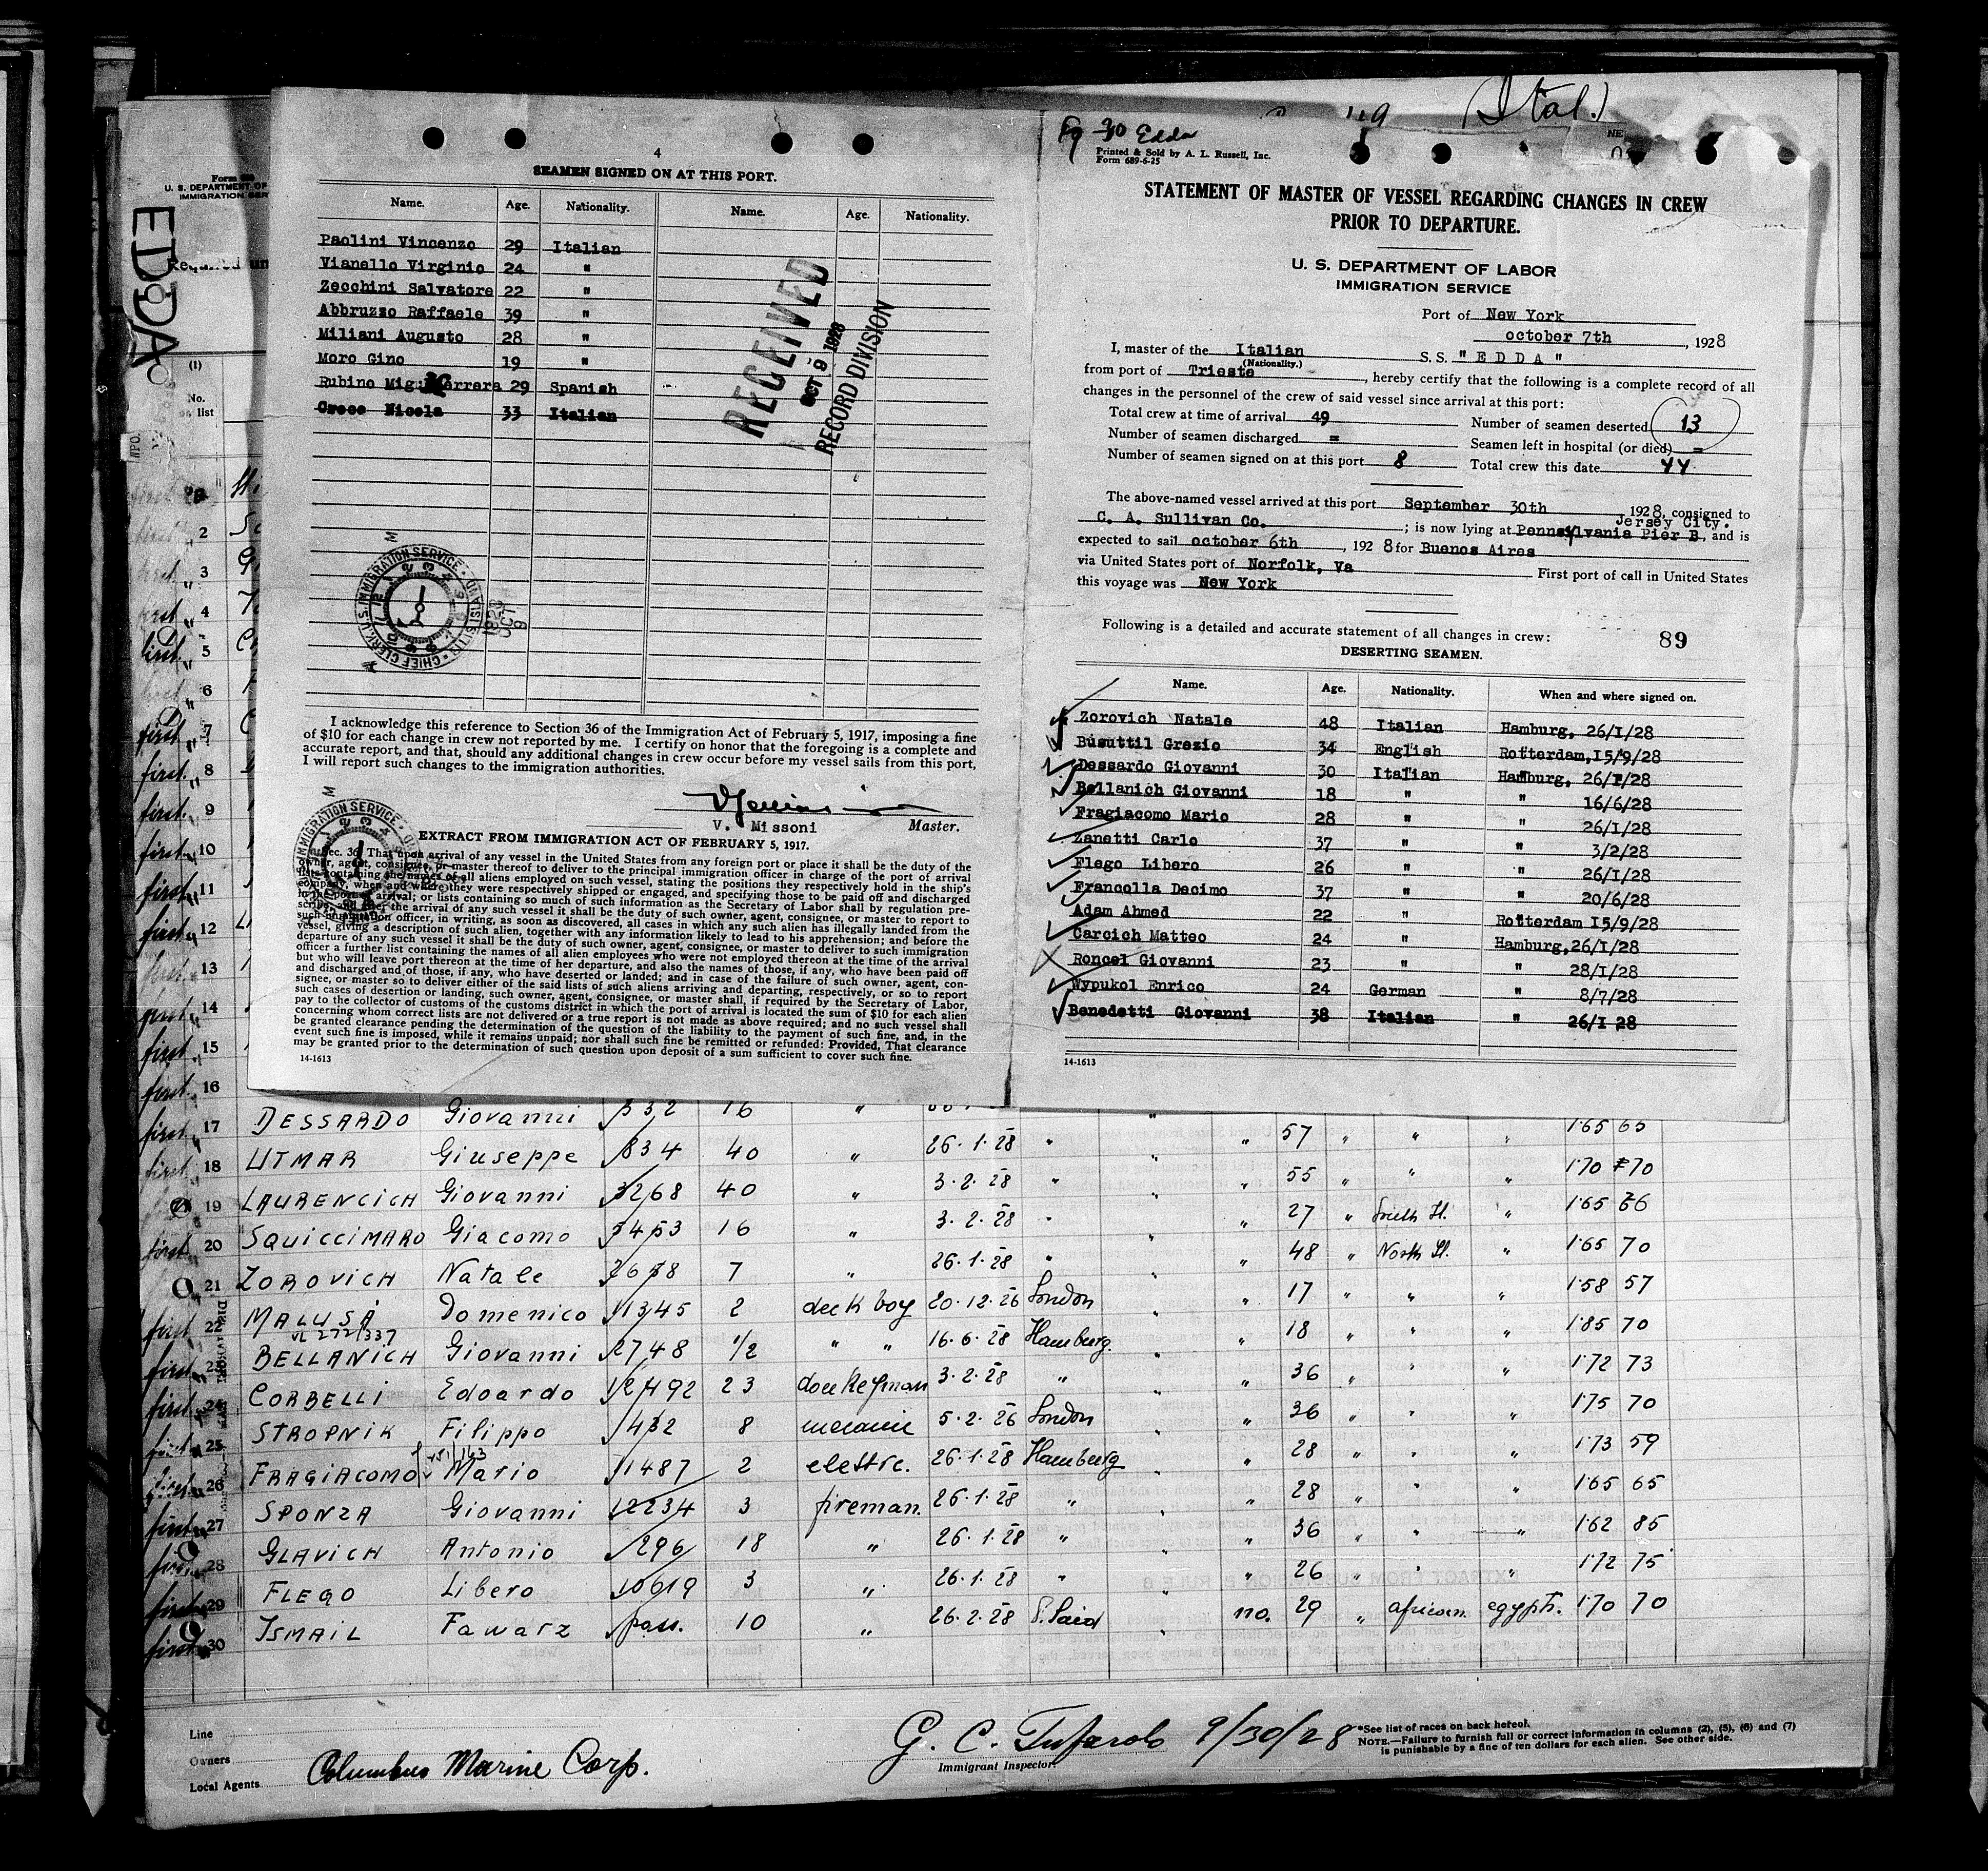 (Ital.)
EDDA
Form
U. S. DEPARTMENT OF
IMMIGRATION SER
Required un
(1)
No.
on list
4
SEAMEN SIGNED ON AT THIS PORT.
Name. Age. Nationality. Name. Age. Nationality.
Paolini Vincenzo 29 Italian
Vianello Virginio 24 "
Zecchini Salvatore 22 "
Abbruzzo Raffaele 39 "
Miliani Augusto 28 "
Moro Gino 19 "
Rubino Migu errera 29 Spanish
Greco Nicola 33 Italian
RECEIVED
OCT 9 1928
RECORD DIVISION
I acknowledge this reference to Section 36 of the Immigration Act of February 5, 1917, imposing a fine
of $10 for each change in crew not reported by me. I certify on honor that the foregoing is a complete and
accurate report, and that, should any additional changes in crew occur before my vessel sails from this port,
I will report such changes to the immigration authorities.
V. Missoni Master.
EXTRACT FROM IMMIGRATION ACT OF FEBRUARY 5, 1917.
Sec. 36. That upon arrival of any vessel in the United States from any foreign port or place it shall be the duty of the
owner, agent, consignee, or master thereof to deliver to the principal immigration officer in charge of the port of arrival
lists containing the names of all aliens employed on such vessel, stating the positions they respectively hold in the ship's
company, when and where they were respectively shipped or engaged, and specifying those to be paid off and discharged
in the port of arrival; or lists containing so much of such information as the Secretary of Labor shall by regulation pre-
scribe; and after the arrival of any such vessel it shall be the duty of such owner, agent, consignee, or master to report to
such immigration officer, in writing, as soon as discovered, all cases in which any such alien has illegally landed from the
vessel, giving a description of such alien, together with any information likely to lead to his apprehension; and before the
departure of any such vessel it shall be the duty of such owner, agent, consignee, or master to deliver to such immigration
officer a further list containing the names of all alien employees who were not employed thereon at the time of the arrival
but who will leave port thereon at the time of her departure, and also the names of those, if any, who have been paid off
and discharged and of those, if any, who have deserted or landed; and in case of the failure of such owner, agent, con-
signee, or master so to deliver either of the said lists of such aliens arriving and departing, respectively, or so to report
such cases of desertion or landing, such owner, agent, consignee, or master shall, if required by the Secretary of Labor,
pay to the collector of customs of the customs district in which the port of arrival is located the sum of $10 for each alien
concerning whom correct lists are not delivered or a true report is not made as above required; and no such vessel shall
be granted clearance pending the determination of the question of the liability to the payment of such fine, and, in the
event such fine is imposed, while it remains unpaid; nor shall such fine be remitted or refunded: Provided, That clearance
may be granted prior to the determination of such question upon deposit of a sum sufficient to cover such fine.
14-1613
Edda
Printed & Sold by A. L. Russell, Inc.
Form 689-6-25
STATEMENT OF MASTER OF VESSEL REGARDING CHANGES IN CREW
PRIOR TO DEPARTURE.
U. S. DEPARTMENT OF LABOR
IMMIGRATION SERVICE
Port of New York
october 7th, 1928
I, master of the Italian S.S. "EDDA"
(Nationality.)
from port of Trieste, hereby certify that the following is a complete record of all
changes in the personnel of the crew of said vessel since arrival at this port:
Total crew at time of arrival 49 Number of seamen deserted 13
Number of seamen discharged = Seamen left in hospital (or died) =
Number of seamen signed on at this port 8 Total crew this date 44
The above-named vessel arrived at this port September 30th, 1928, consigned to
C. A. Sullivan Co.; is now lying at Pennsylvania Pier B, Jersey City. and is
expected to sail october 6th, 1928 for Buenos Aires
via United States port of Norfolk, Va First port of call in United States
this voyage was New York
Following is a detailed and accurate statement of all changes in crew: 89
DESERTING SEAMEN.
Name. Age. Nationality. When and where signed on.
Zorovich Natale 48 Italian Hamburg, 26/1/28
Busuttil Grezio 34 English Rotterdam, 15/9/28
Dessardo Giovanni 30 Italian Hamburg, 26/1/28
Bellanich Giovanni 18 " " 16/6/28
Fragiacomo Mario 28 " " 26/1/28
Zanetti Carlo 37 " " 3/2/28
Flego Libero 26 " " 26/1/28
Francolla Decimo 37 " " 20/6/28
Adam Ahmed 22 " Rotterdam 15/9/28
Carcich Matteo 24 " Hamburg, 26/1/28
Roncel Giovanni 23 " " 28/1/28
Wypukol Enrico 24 German " 8/7/28
Benedetti Giovanni 38 Italian " 26/1 28
14-1613
first 17 DESSARDO Giovanni 332 16 "
first 18 UTMAR Giuseppe 834 40 " 26.1.28 " " " 57 " " " 1.65 65
19 LAURENCICH Giovanni 3268 40 " 3.2.28 " " " 55 " " " 1.70 70
first 20 SQUICCIMARO Giacomo 3453 16 " 3.2.28 " " " 27 " South It. " 1.65 66
21 ZOROVICH Natale 2638 7 " 26.1.28 " " " 48 " North It. " 1.65 70
first 22 MALUSÀ Domenico 11345 2 deck boy 20.12.26 London " " 17 " " " 1.58 57
first 23 BELLANICH Giovanni 2748 1/2 " " 16.6.28 Hamburg " " 18 " " " 1.85 70
first 24 CORBELLI Edoardo 12492 23 donkeyman 3.2.28 " " " 36 " " " 1.72 73
first 25 STROPNIK Filippo 432 8 mecanic 5.2.26 London " " 36 " " " 1.75 70
first 26 FRAGIACOMO Mario 11487 2 elettr. 26.1.28 Hamburg " " 28 " " " 1.73 59
first 27 SPONZA Giovanni 12234 3 fireman 26.1.28 " " " 28 " " " 1.65 65
28 GLAVICH Antonio 296 18 " 26.1.28 " " " 36 " " " 1.62 85
first 29 FLEGO Libero 10619 3 " 26.1.28 " " " 26 " " " 1.72 75
first 30 ISMAIL Fawarz pass. 10 " 26.2.28 P. Said " no. 29 " african egypt. 1.70 70
Line
Owners
Local Agents Columbus Marine Corp.
G. C. Tufarolo 9/30/28
Immigrant Inspector.
*See list of races on back hereof.
NOTE.—Failure to furnish full or correct information in columns (2), (5), (6) and (7)
is punishable by a fine of ten dollars for each alien. See other side.